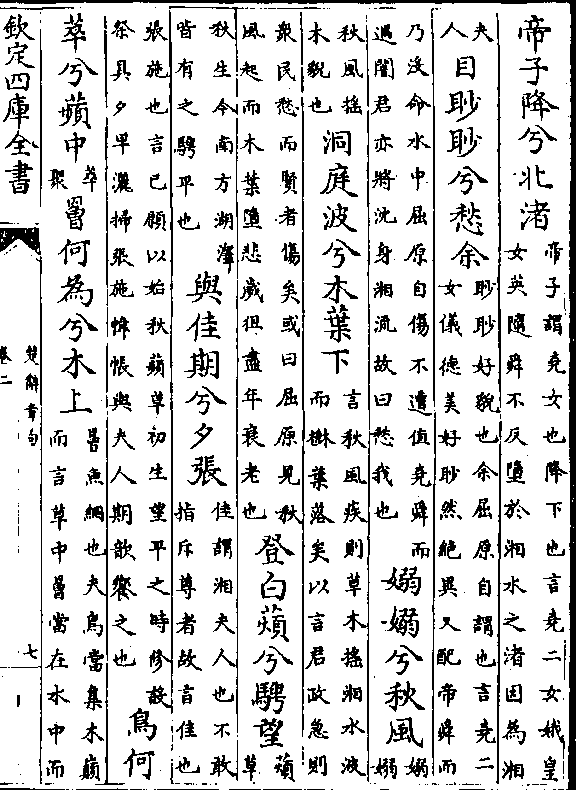 帝子降兮北渚帝子謂堯女也降下也言堯二女娥皇女英隨舜不反墮於湘水之渚因為湘
夫人目眇眇兮愁余眇眇好貌也余屈原自謂也言堯二女儀德美好眇然絶異又配帝舜而
乃沒命水中屈原自傷不遭值堯舜而遇闇君亦將沈身湘流故曰愁我也嫋嫋兮秋風嫋嫋
秋風搖木貌也洞庭波兮木葉下言秋風疾則草木搖湘水波而樹葉落矣以言君政急則
衆民愁而賢者傷矣或曰屈原見秋風起而木葉墮悲歲徂盡年衰老也登白蘋兮騁望蘋草
秋生今南方湖澤皆有之騁平也與佳期兮夕張佳謂湘夫人也不敢指斥尊者故言佳也
張施也言己願以始秋蘋草初生望平之時修設祭具夕早灑掃張施帷帳與夫人期歆饗之也鳥何
萃兮蘋中萃聚罾何為兮木上罾魚網也夫鳥當集木巔而言草中罾當在水中而
欽定四庫全書
楚辭章句
卷二
七